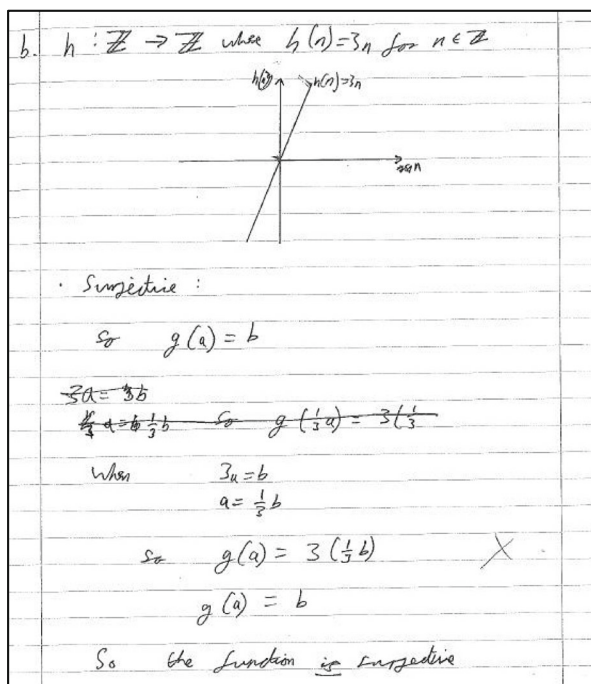 b. h : ℤ → ℤ where h(n)=3n for n ∈ ℤ
h(n)
h(n)=3n
n
· Surjective :
so g(a) = b
3a = 3b
a = 1/3 b so g(1/3 a) = 3(1/3
when 3a = b
a = 1/3 b
so g(a) = 3(1/3 b) X
g(a) = b
So the function is surjective